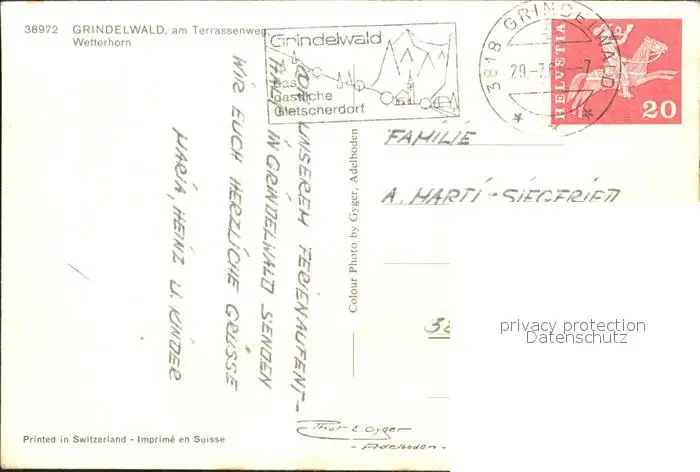 38972 GRINDELWALD, am Terrassenweg,
Wetterhorn
Grindelwald
das
gastliche
Gletscherdorf
3818 GRINDELWALD
29.-7.
7
HELVETIA
20
VON UNSEREM FERIENAUFENT-
HALT IN GRINDELWALD SENDEN
WIR EUCH HERZLICHE GRÜSSE
MARIA, HEINZ U. KINDER
Colour Photo by Gyger, Adelboden
FAMILIE
A. MARTI-SIEGFRIED
38
privacy protection
Datenschutz
Printed in Switzerland - Imprimé en Suisse
Gyger
- Adelboden -